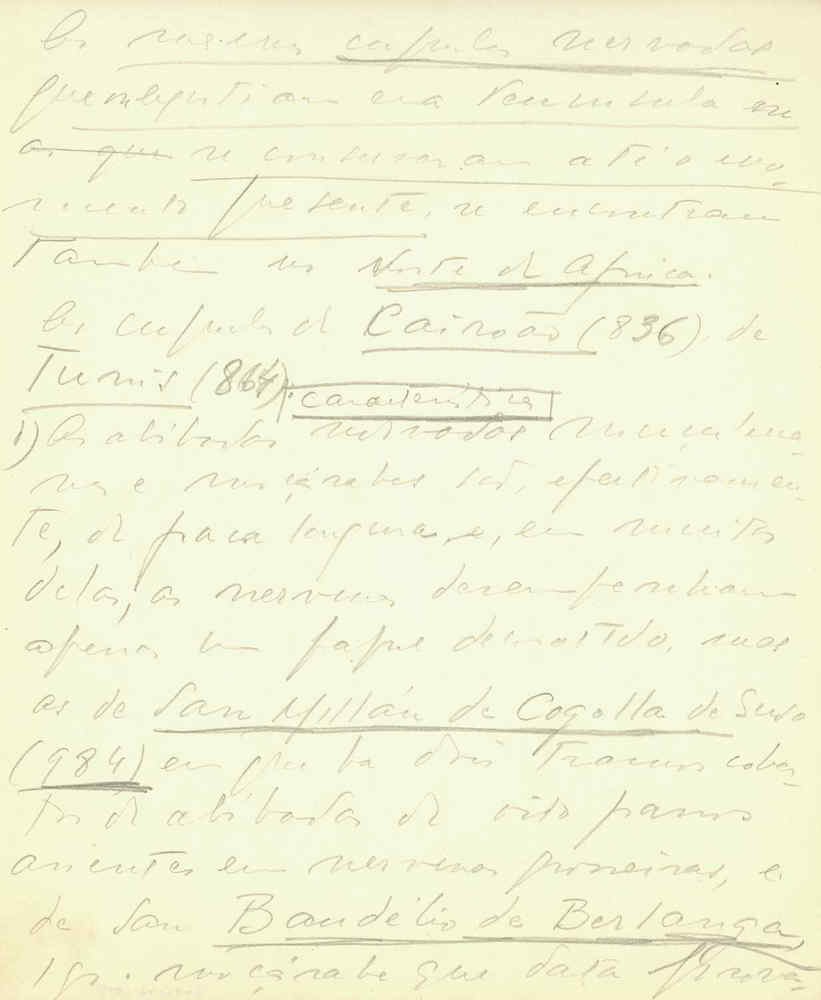 As mesmas cupulas nervadas
que
na Peninsula ou
as que se conservaram até o mo-
mento presente, se encontram
Também no Norte de Africa.
As cupulas de Cairoão (836), de
Tunis (864). caracteristica
1) As abóbadas nervadas muçulma-
nas e moçárabes são, efectivamen-
te, de fraca largura, e, em muitas
delas, as nervuras desempenham
apenas um papel decorativo, mas
as de San Millán de Cogolla de Suso
(984) em que ha dois Tramos cober-
tos de abóbadas de oito panos
assentes em nervuras grosseiras, e
de San Baudélio de Berlanga,
igr. moçárabe que data prova-